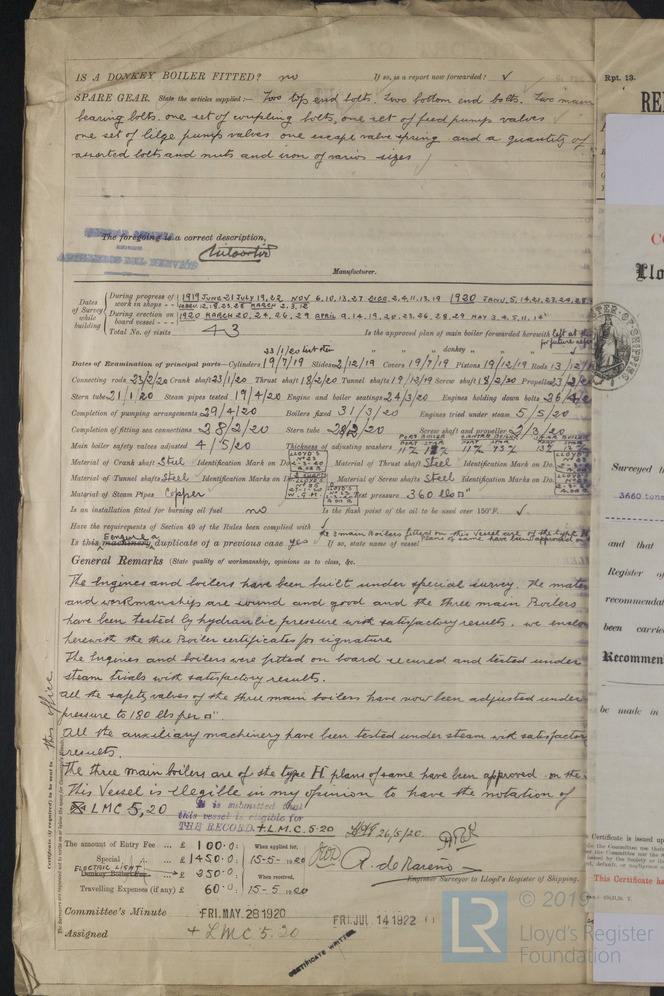 IS A DONKEY BOILER FITTED? no If so, is a report now forwarded? ✓
SPARE GEAR. State the articles supplied:— Two top end bolts. Two bottom end bolts. Two main
bearing bolts. one set of coupling bolts, one set of feed pumps valves
one set of bilge pumps valves one escape valve spring and a quantity of
assorted bolts and nuts and iron of varios sizes
The foregoing is a correct description,
Manufacturer.
Dates of Survey while building
During progress of work in shops - - 1919 JUNE 21 JULY 19, 22 NOV 6, 10, 13, 27 2, 4, 11, 13, 19 1920 5, 14, 21, 23, 24, 28
12, 18, 23, 28 MARCH 2, 3, 12
During erection on board vessel - - - 1920 MARCH 20, 24, 26, 29 APRIL 9, 14, 19, 20, 23, 26, 28, 29 MAY 3, 4, 5, 11, 14
Total No. of visits 43 Is the approved plan of main boiler forwarded herewith left at
for future
" " " donkey " " "
23/1/20
Dates of Examination of principal parts—Cylinders 19/7/19 Slides 2/12/19 Covers 19/7/19 Pistons 19/12/19 Rods 13/12/
Connecting rods 23/2/20 Crank shaft 23/1/20 Thrust shaft 18/2/20 Tunnel shafts 19/12/19 Screw shaft 18/2/20 Propeller 23/2/
Stern tube 21/1/20 Steam pipes tested 19/4/20 Engine and boiler seatings 24/3/20 Engines holding down bolts 26/4/
Completion of pumping arrangements 29/4/20 Boilers fixed 31/3/20 Engines tried under steam 5/5/20
Completion of fitting sea connections 28/2/20 Stern tube 28/2/20 Screw shaft and propeller 2/3/20
Main boiler safety valves adjusted 4/5/20 Thickness of adjusting washers
Material of Crank shaft Steel Identification Mark on Do. Material of Thrust shaft Steel Identification Mark on Do.
Material of Tunnel shafts Steel Identification Marks on Material of Screw shafts Steel Identification Marks on Do.
Material of Steam Pipes Copper Test pressure 360 lbs □"
Is an installation fitted for burning oil fuel no Is the flash point of the oil to be used over 150°F. ✓
Have the requirements of Section 49 of the Rules been complied with ✓
Is this machinery duplicate of a previous case yes If so, state name of vessel
The 3 main Boilers fitted on this vessel are of the type H
Plans of same have been approved on
General Remarks (State quality of workmanship, opinions as to class, &c.
The Engines and boilers have been built under special survey. The mate
and workmanship are sound and good and the three main Boilers
have been tested by hydraulic pressure with satisfactory results. we enclo
herewith the thre Boiler certificates for signature
The Engines and boilers were fitted on board secured and tested under
steam trials with satisfactory results.
all the safety valves of the three main boilers have now been adjusted under
pressure to 180 lbs per □".
All the auxiliary machinery have been tested under steam with satisfactor
results.
The three main boilers are of the type H plans of same have been approved on the
This Vessel is elegible in my opinion to have the notation of
LMC 5,20
It is submitted that
this vessel is eligible for
THE RECORD. + L.M.C. 5.20 26/5/20.
The amount of Entry Fee ... £ 100.0: When applied for,
Special ,, ... £ 1450.0: 15-5-1920
ELECTRIC LIGHT
Donkey Boiler Fee ... £ 250.0: When received,
Travelling Expenses (if any) £ 60.0: 15-5-1920
Engineer Surveyor to Lloyd's Register of Shipping.
Committee's Minute FRI. MAY 28 1920 FRI. JUL 14 1922
Assigned + LMC 5.20
CERTIFICATE WRITTEN
Certificate (if required) to be sent to this office
Rpt. 13.
Surveyed
3660 tons
and that
Register
recommendat
been carried
Recommen
be made in
Certificate is issued
This Certificate ha
© 2019
LR
Lloyd's Register
Foundation